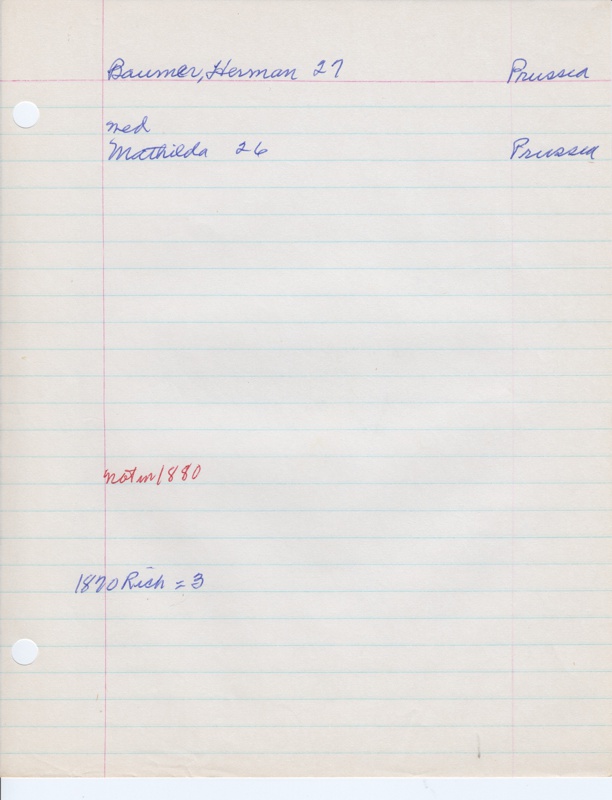 Baumer, Herman 27 Prussia
med
Mathilda 26 Prussia
not in 1880
1870 Rich = 3